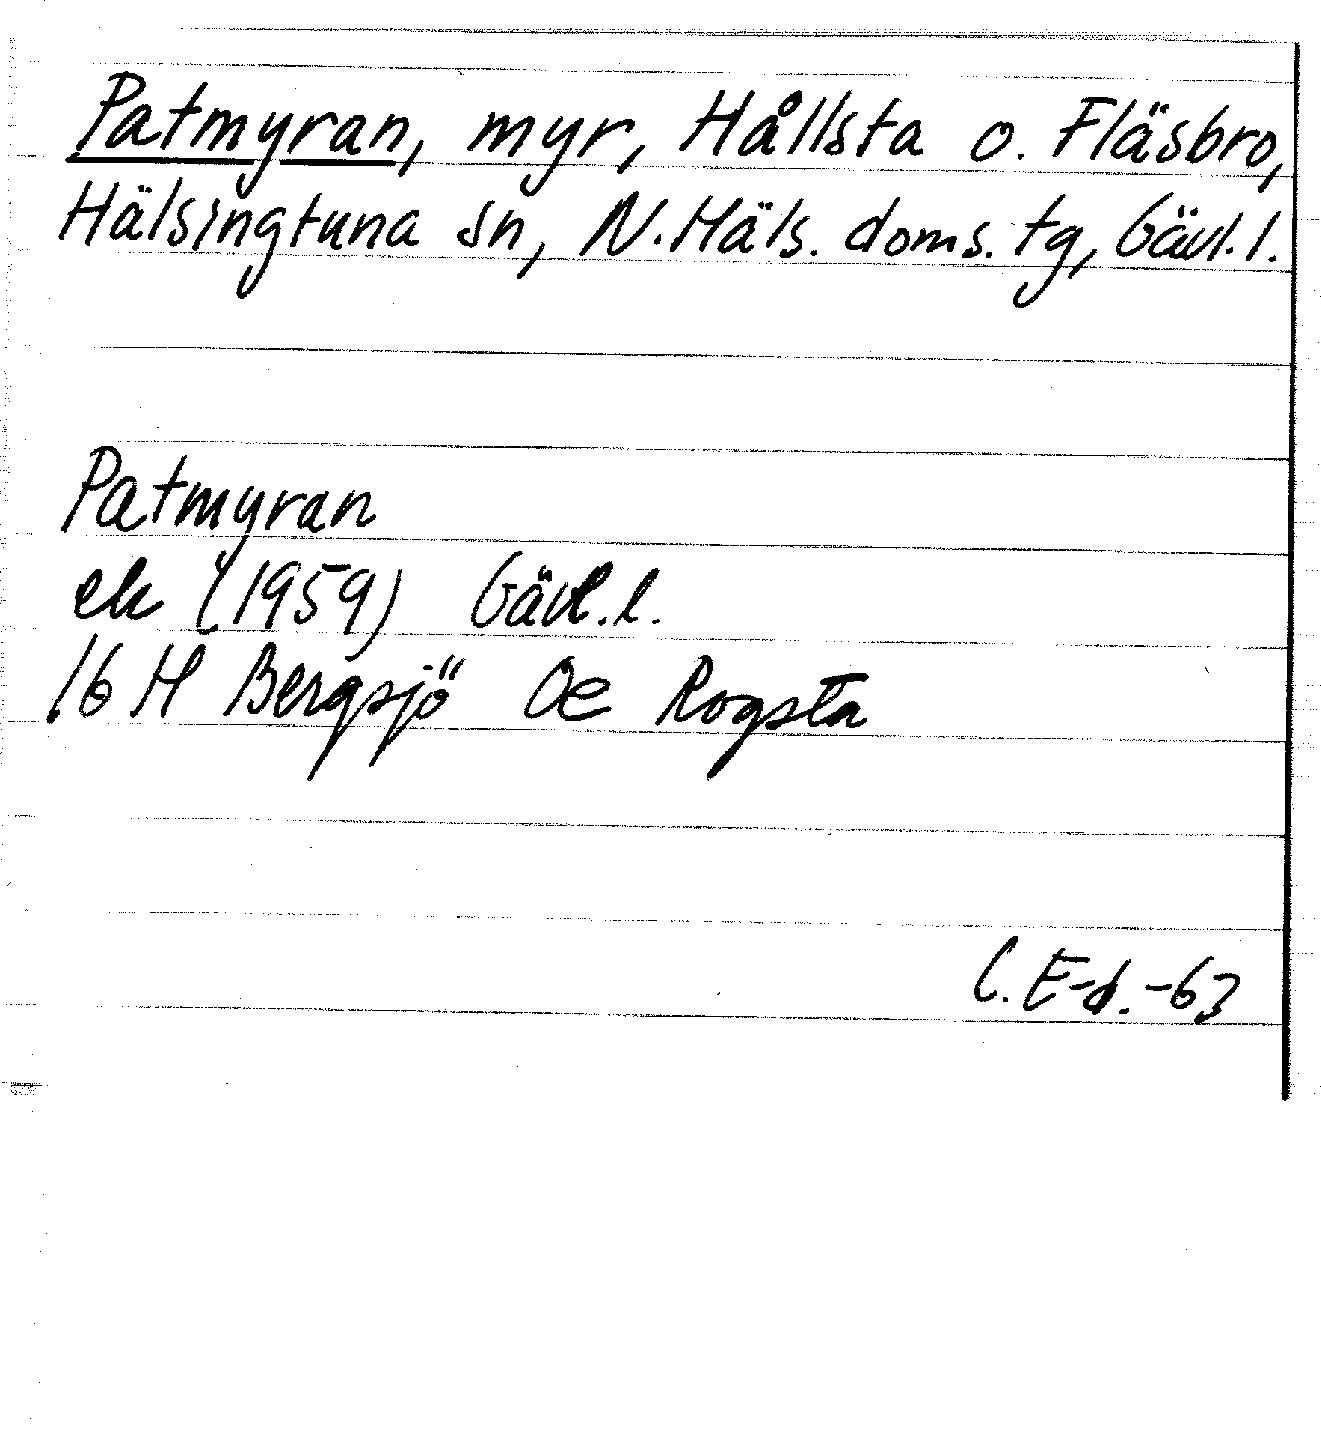 Patmyran, myr, Hållsta o. Fläsbro,
Hälsingtuna sn, N. Häls. doms. tg, Gävl. l.
Patmyran
ek (1959) Gävl. l.
16 H Bergsjö Oe Rogsta
C. E-d. -63